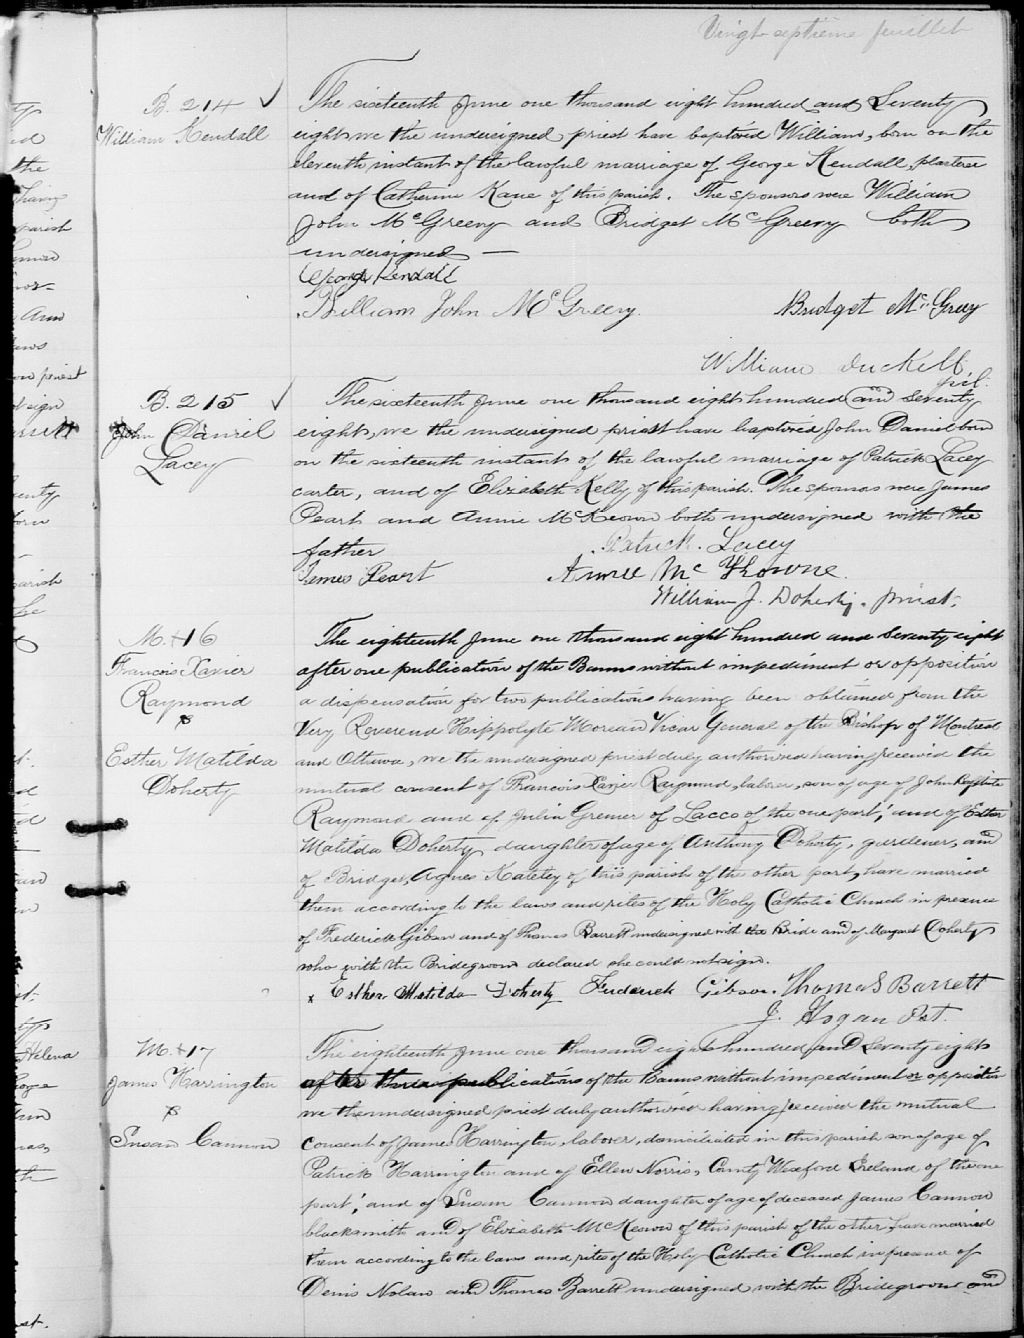 Vingt septième feuillet
B. 214
William Kendall
The sixteenth June one thousand eight hundred and Seventy
eight we the undersigned priest have baptised William, born on the
eleventh instant of the lawful marriage of George Kendall, plasterer
and of Catherine Kane of this parish. The sponsors were William
John McGreevy and Bridget McGreevy both
undersigned —
George Kendall
William John McGreevy. Bridget McGreevy
William
B. 215
John Daniel
Lacey
The sixteenth June one thousand eight hundred and Seventy
eight, we the undersigned priest have baptised John Daniel born
on the sixteenth instant of the lawful marriage of Patrick Lacey
carter, and of Elizabeth Kelly of this parish. The sponsors were James
Peart and Annie McKeown both undersigned with the
father
Patrick Lacey
James Peart
Annie Mc Keowne.
William J. Doherty. priest.
M. 16
Francois Xavier
Raymond
&
Esther Matilda
Doherty
The eighteenth June one thousand eight hundred and Seventy eight
after one publication of the Banns without impediment or opposition
a dispensation for two publications having been obtained from the
Very Reverend Hippolyte Moreau Vicar General of the Bishop of Montreal
and Ottawa, we the undersigned priest duly authorized having received the
mutual consent of Francois Xavier Raymond, laborer, son of age of John Baptiste
Raymond and of Julia Grenier of of the one part; and of Esther
Matilda Doherty daughter of age of Anthony Doherty, gardener, and
of Bridget Agnes of this parish of the other part, have married
them according to the laws and rites of the Holy Catholic Church in presence
of Frederick Gibson and of Thomas Barrett undersigned with the Bride and of Margaret Doherty
who with the Bridegroom declared she could not sign.
x Esther Matilda Doherty Frederick Gibson. Thomas Barrett
J. Hogan Pst.
M. 17
James Harrington
&
Susan Cannon
The eighteenth June one thousand eight hundred and Seventy eight
after three publications of the Banns without impediment or opposition
we the undersigned priest duly authorized having received the mutual
consent of James Harrington, laborer, domiciliated in this parish son of age of
Patrick Harrington and of Ellen Norris, County Wexford Ireland of the one
part; and of Susan Cannon daughter of age of deceased James Cannon
blacksmith and of Elizabeth McKeown of this parish of the other, have married
them according to the laws and rites of the Holy Catholic Church in presence of
Denis Nolan and Thomas Barrett undersigned with the Bridegroom and